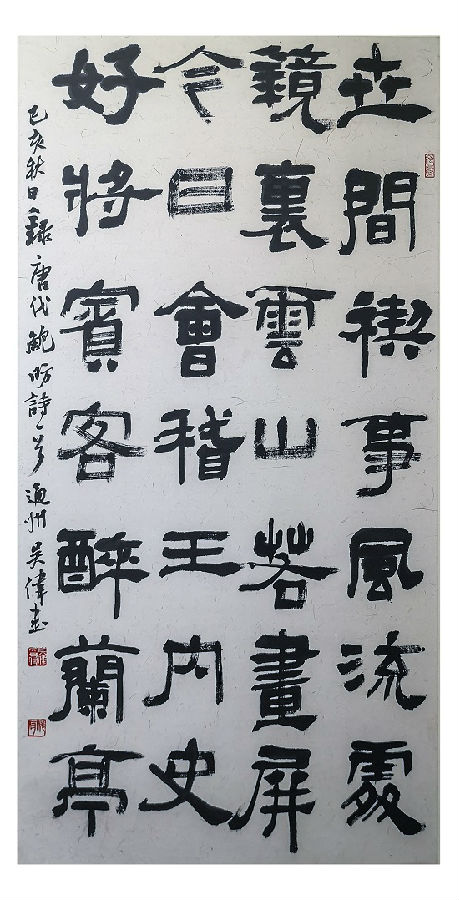 世間禊事風流處
鏡裏雲山若畫屏
今日會稽王內史
好將賓客醉蘭亭
己亥秋日錄唐代鮑防詩一首通州吳偉書